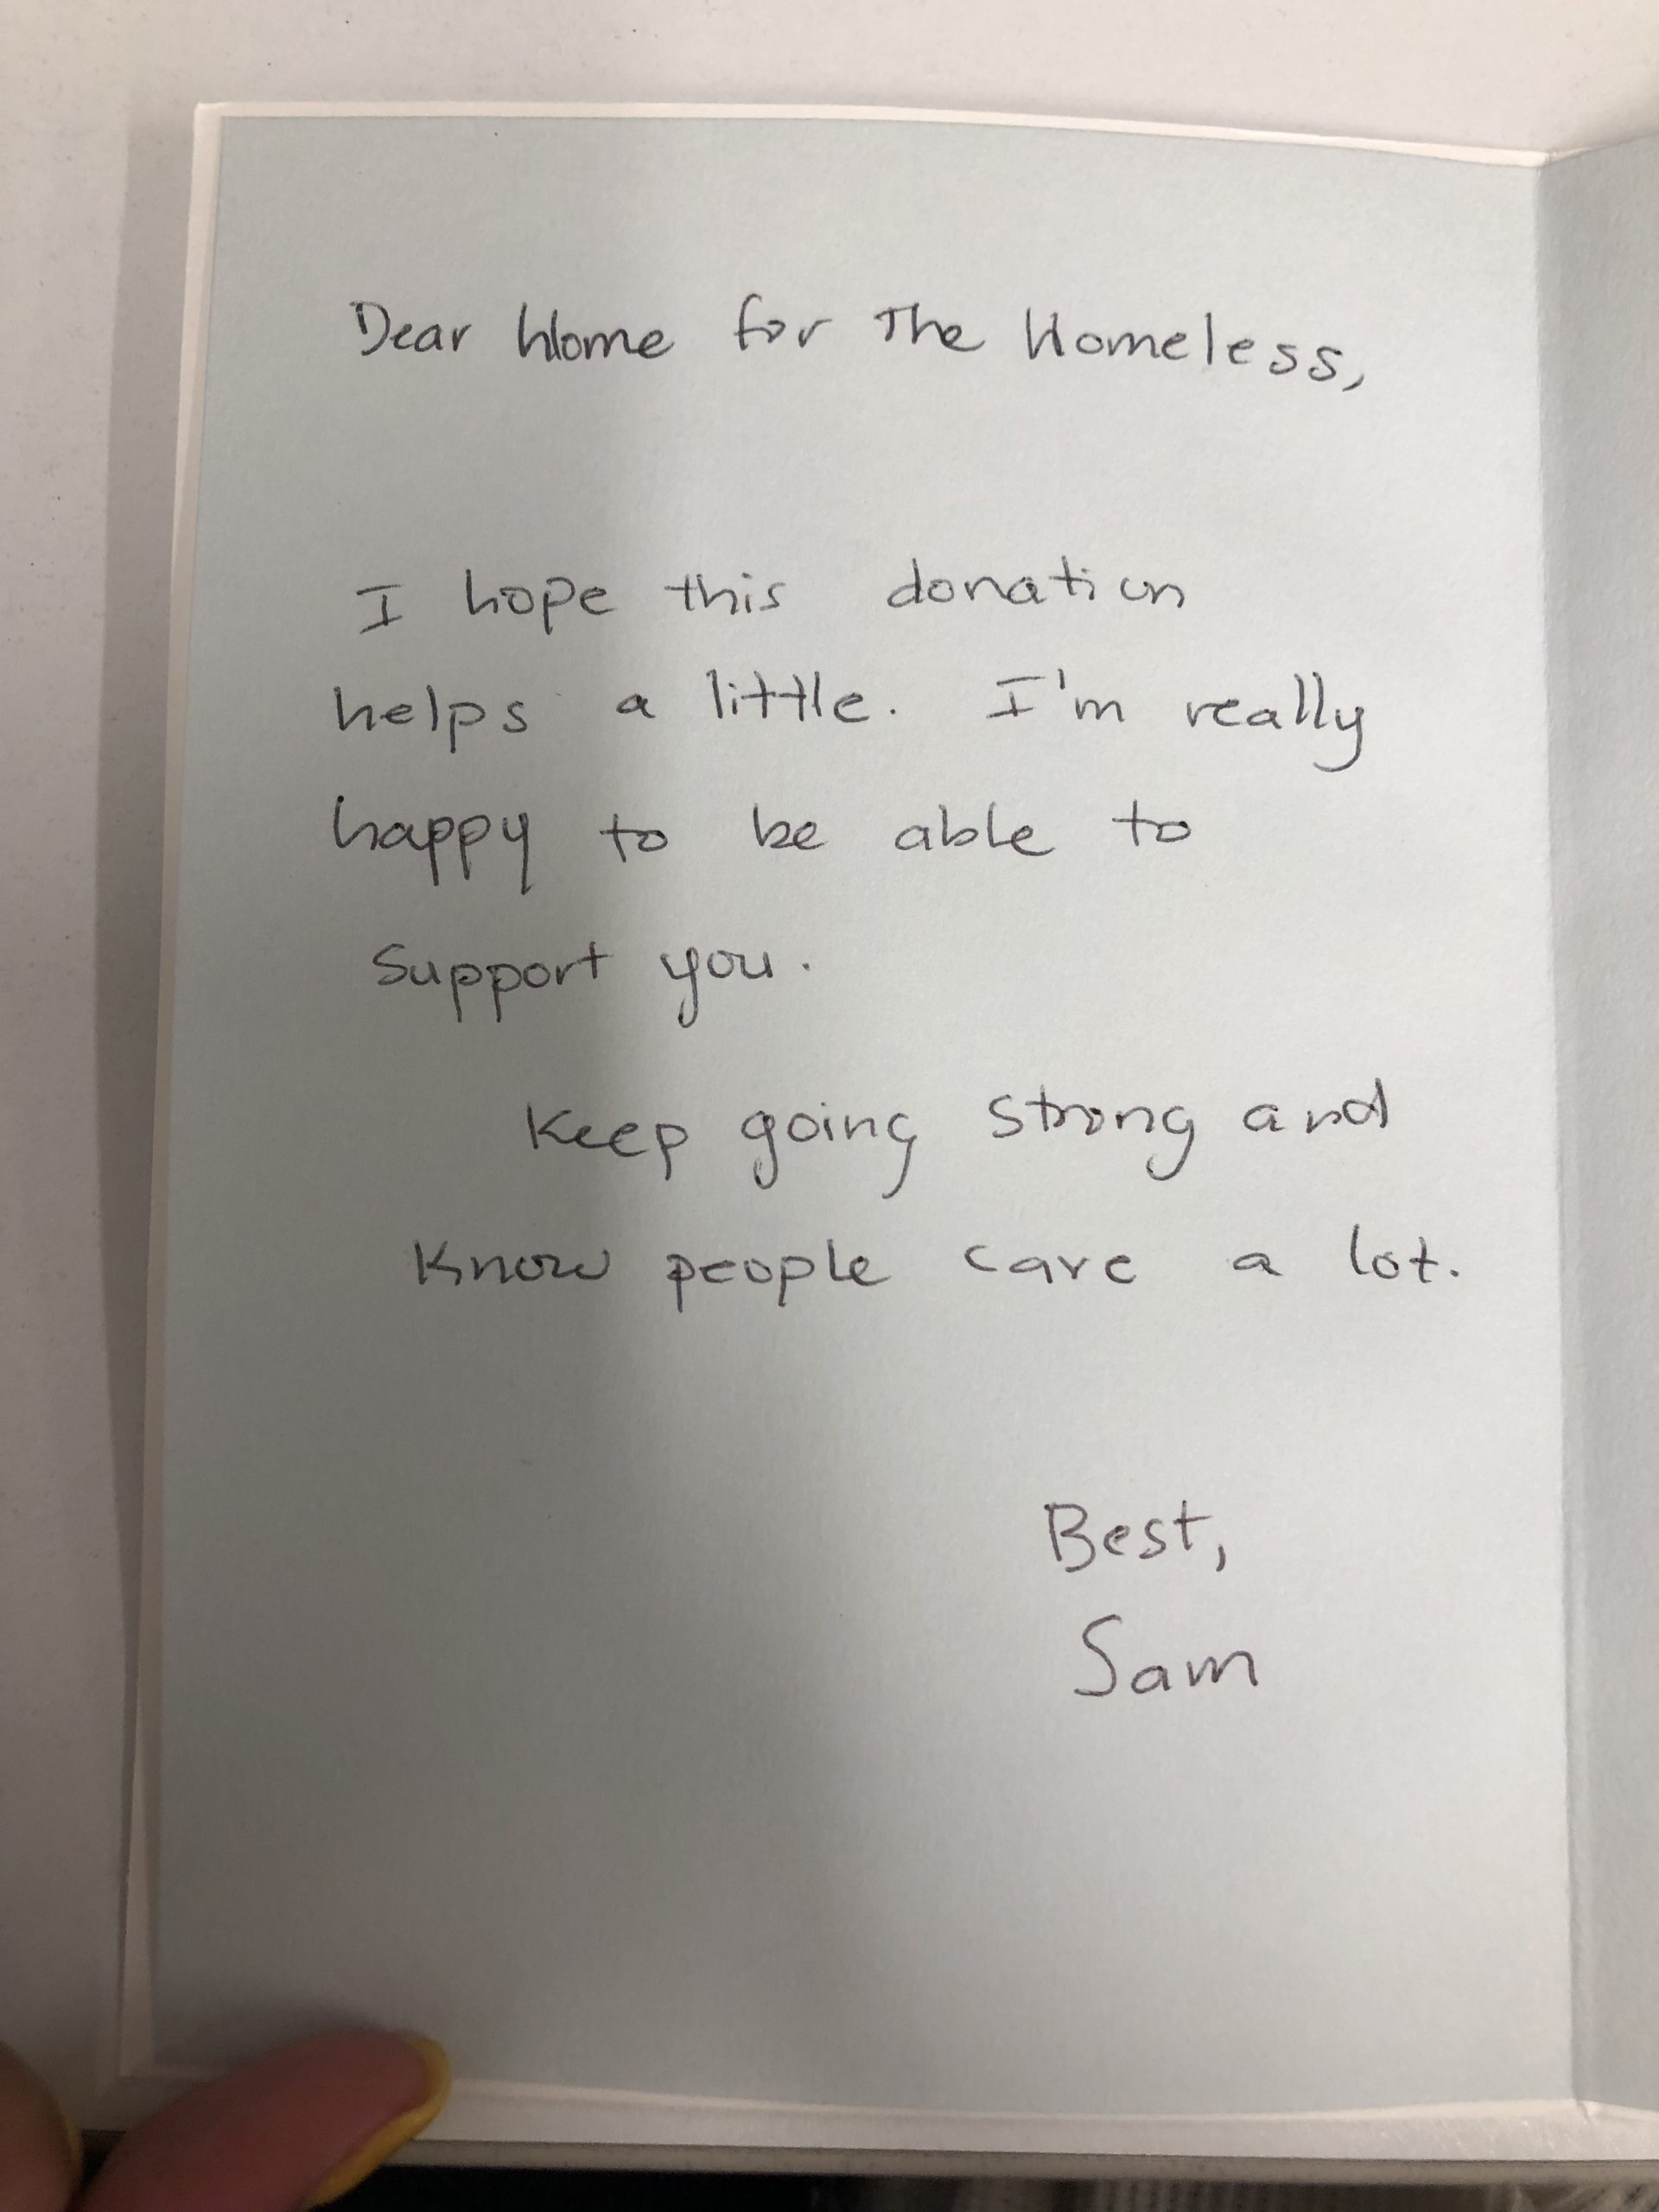 Dear Home for The Homeless,
I hope this donation
helps a little. I'm really
happy to be able to
support you.
Keep going strong and
Know people care a lot.
Best,
Sam